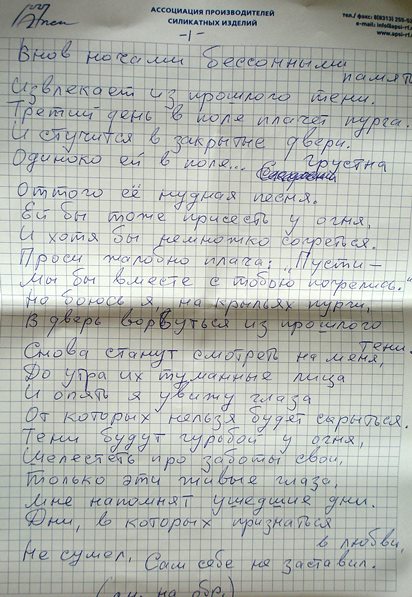 АССОЦИАЦИЯ ПРОИЗВОДИТЕЛЕЙ
СИЛИКАТНЫХ ИЗДЕЛИЙ
тел./ факс: 8(8313) 255-
e-mail: info@apsi-rf.
www.apsi-rf.
-1-
Внов ночами бессонными
память
Извлекает из прошлого тени.
Третий день в поля плачет пурга.
И стучится в закрытые двери.
Одиноко ей в поля... грустна
Оттого её нудная песня.
Ей бы тоже присесть у огня,
И хотя бы немножко согреться.
Проси жалобно плача: „Пусти –
Мы бы вместе с тобою погрелись."
Но боюсь я, на крыльях пурги,
В дверь ворвуться из прошлого
тени.
Снова станут смотреть на меня,
До утра их туманные лица
И опять я увижу глаза
От которых нельзя будет скрыться.
Тени будут гурьбой у огня,
Шелестеть про заботы свои,
Только эти живые глаза,
Мне напомнят ушедшие дни.
Дни, в которых признаться
в любви,
Не сумел, Сам себе не заставил.
(см. на обр.)